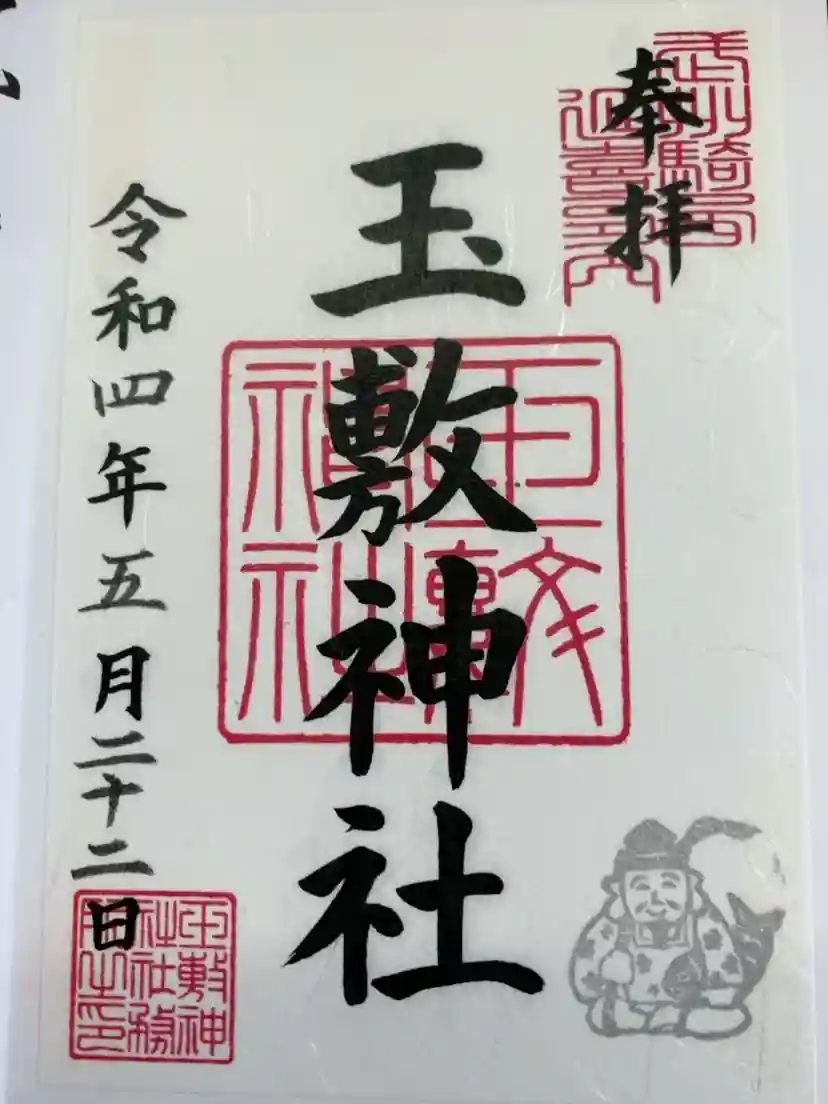 奉拝
玉敷神社
令和四年五月二十二日
玉敷神社
玉敷神社社務所之印